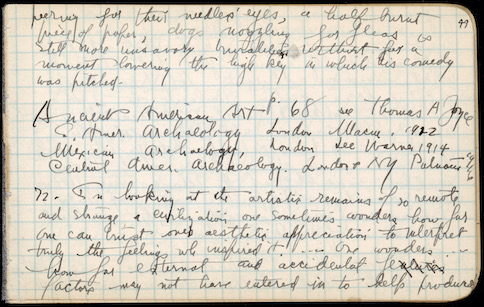 peering for their needles' eyes, a half burnt
piece of paper, dogs nozzling for fleas &
still more unsavory trivialities without for a
moment lowering the high key in which his comedy
was pitched.
Ancient American Art p. 68 see Thomas A Joyce
S. Amer. Archaeology London Macm. 1912
Mexican Archaeology, London Lee Warner 1914
Central Amer. Archaeology. London & NY Putnams 1916
72. In looking at the artistic remains of so remote
and strange a civilization one sometimes wonders how far
one can trust one's aesthetic appreciation to interpret
truly the feelings wh inspired it. ... One wonders ...
how far external and accidental
factors may not have entered in to help produce